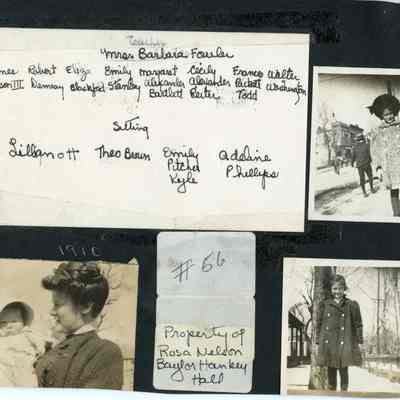 Teacher
Mrs. Barbara Fowler
Robert Eliza Emily Margaret Cecily Frances Walter
III Blackford Stanley Alexander Alexander Puckett Washington
Bartlett Reiter Todd
Sitting
Lillian Ott Theo Brown Emily Adeline
Pitcher Phillips
Kyle
1910
#56
Property of
Rosa Nelson
Baylor Hankey
Hall